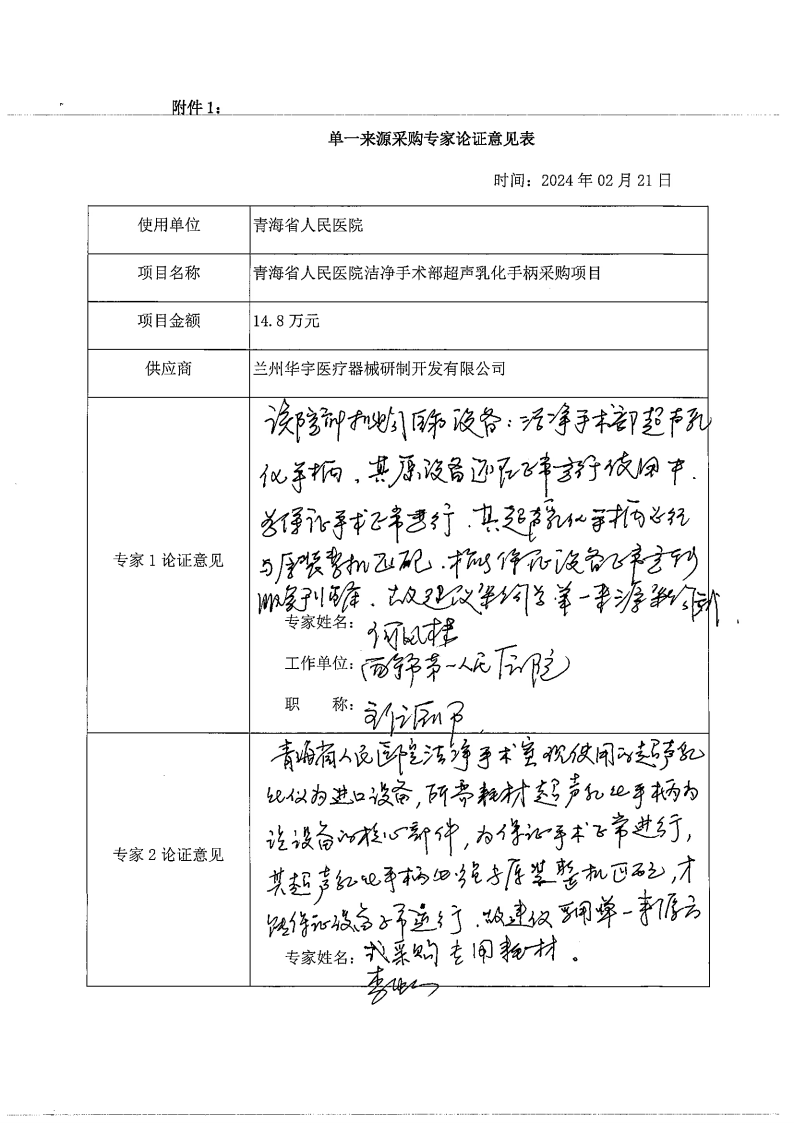 附件1:
单一来源采购专家论证意见表
时间: 2024年02月21日
使用单位 青海省人民医院
项目名称 青海省人民医院洁净手术部超声乳化手柄采购项目
项目金额 14.8万元
供应商 兰州华宇医疗器械研制开发有限公司
专家1论证意见
设备:洁净手术部超声乳
化手柄,其原设备还在正常运行使用中.
为保证手术正常进行.其超声乳化手柄必须
与原装整机匹配.才能保证设备正常
故建议采购为单一来源采购
专家姓名:何凤桂
工作单位:西宁市第一人民医院
职 称:主任医师
专家2论证意见
青海省人民医院洁净手术室现使用的超声乳
化仪为进口设备,所需耗材超声乳化手柄为
该设备的核心部件,为保证手术正常进行,
其超声乳化手柄必须与原装整机匹配,才
能保证设备正常运行.故建议采用单一来源方
式采购专用耗材。
专家姓名: